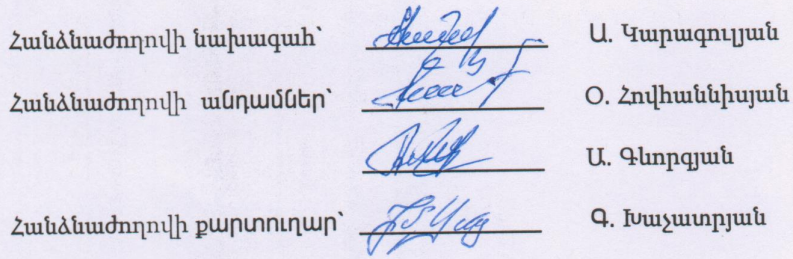 Հանձնաժողովի նախագահ՝ Ա. Կարագուլյան
Հանձնաժողովի անդամներ՝ Օ. Հովհաննիսյան
Ա. Գևորգյան
Հանձնաժողովի քարտուղար՝ Գ. Խաչատրյան